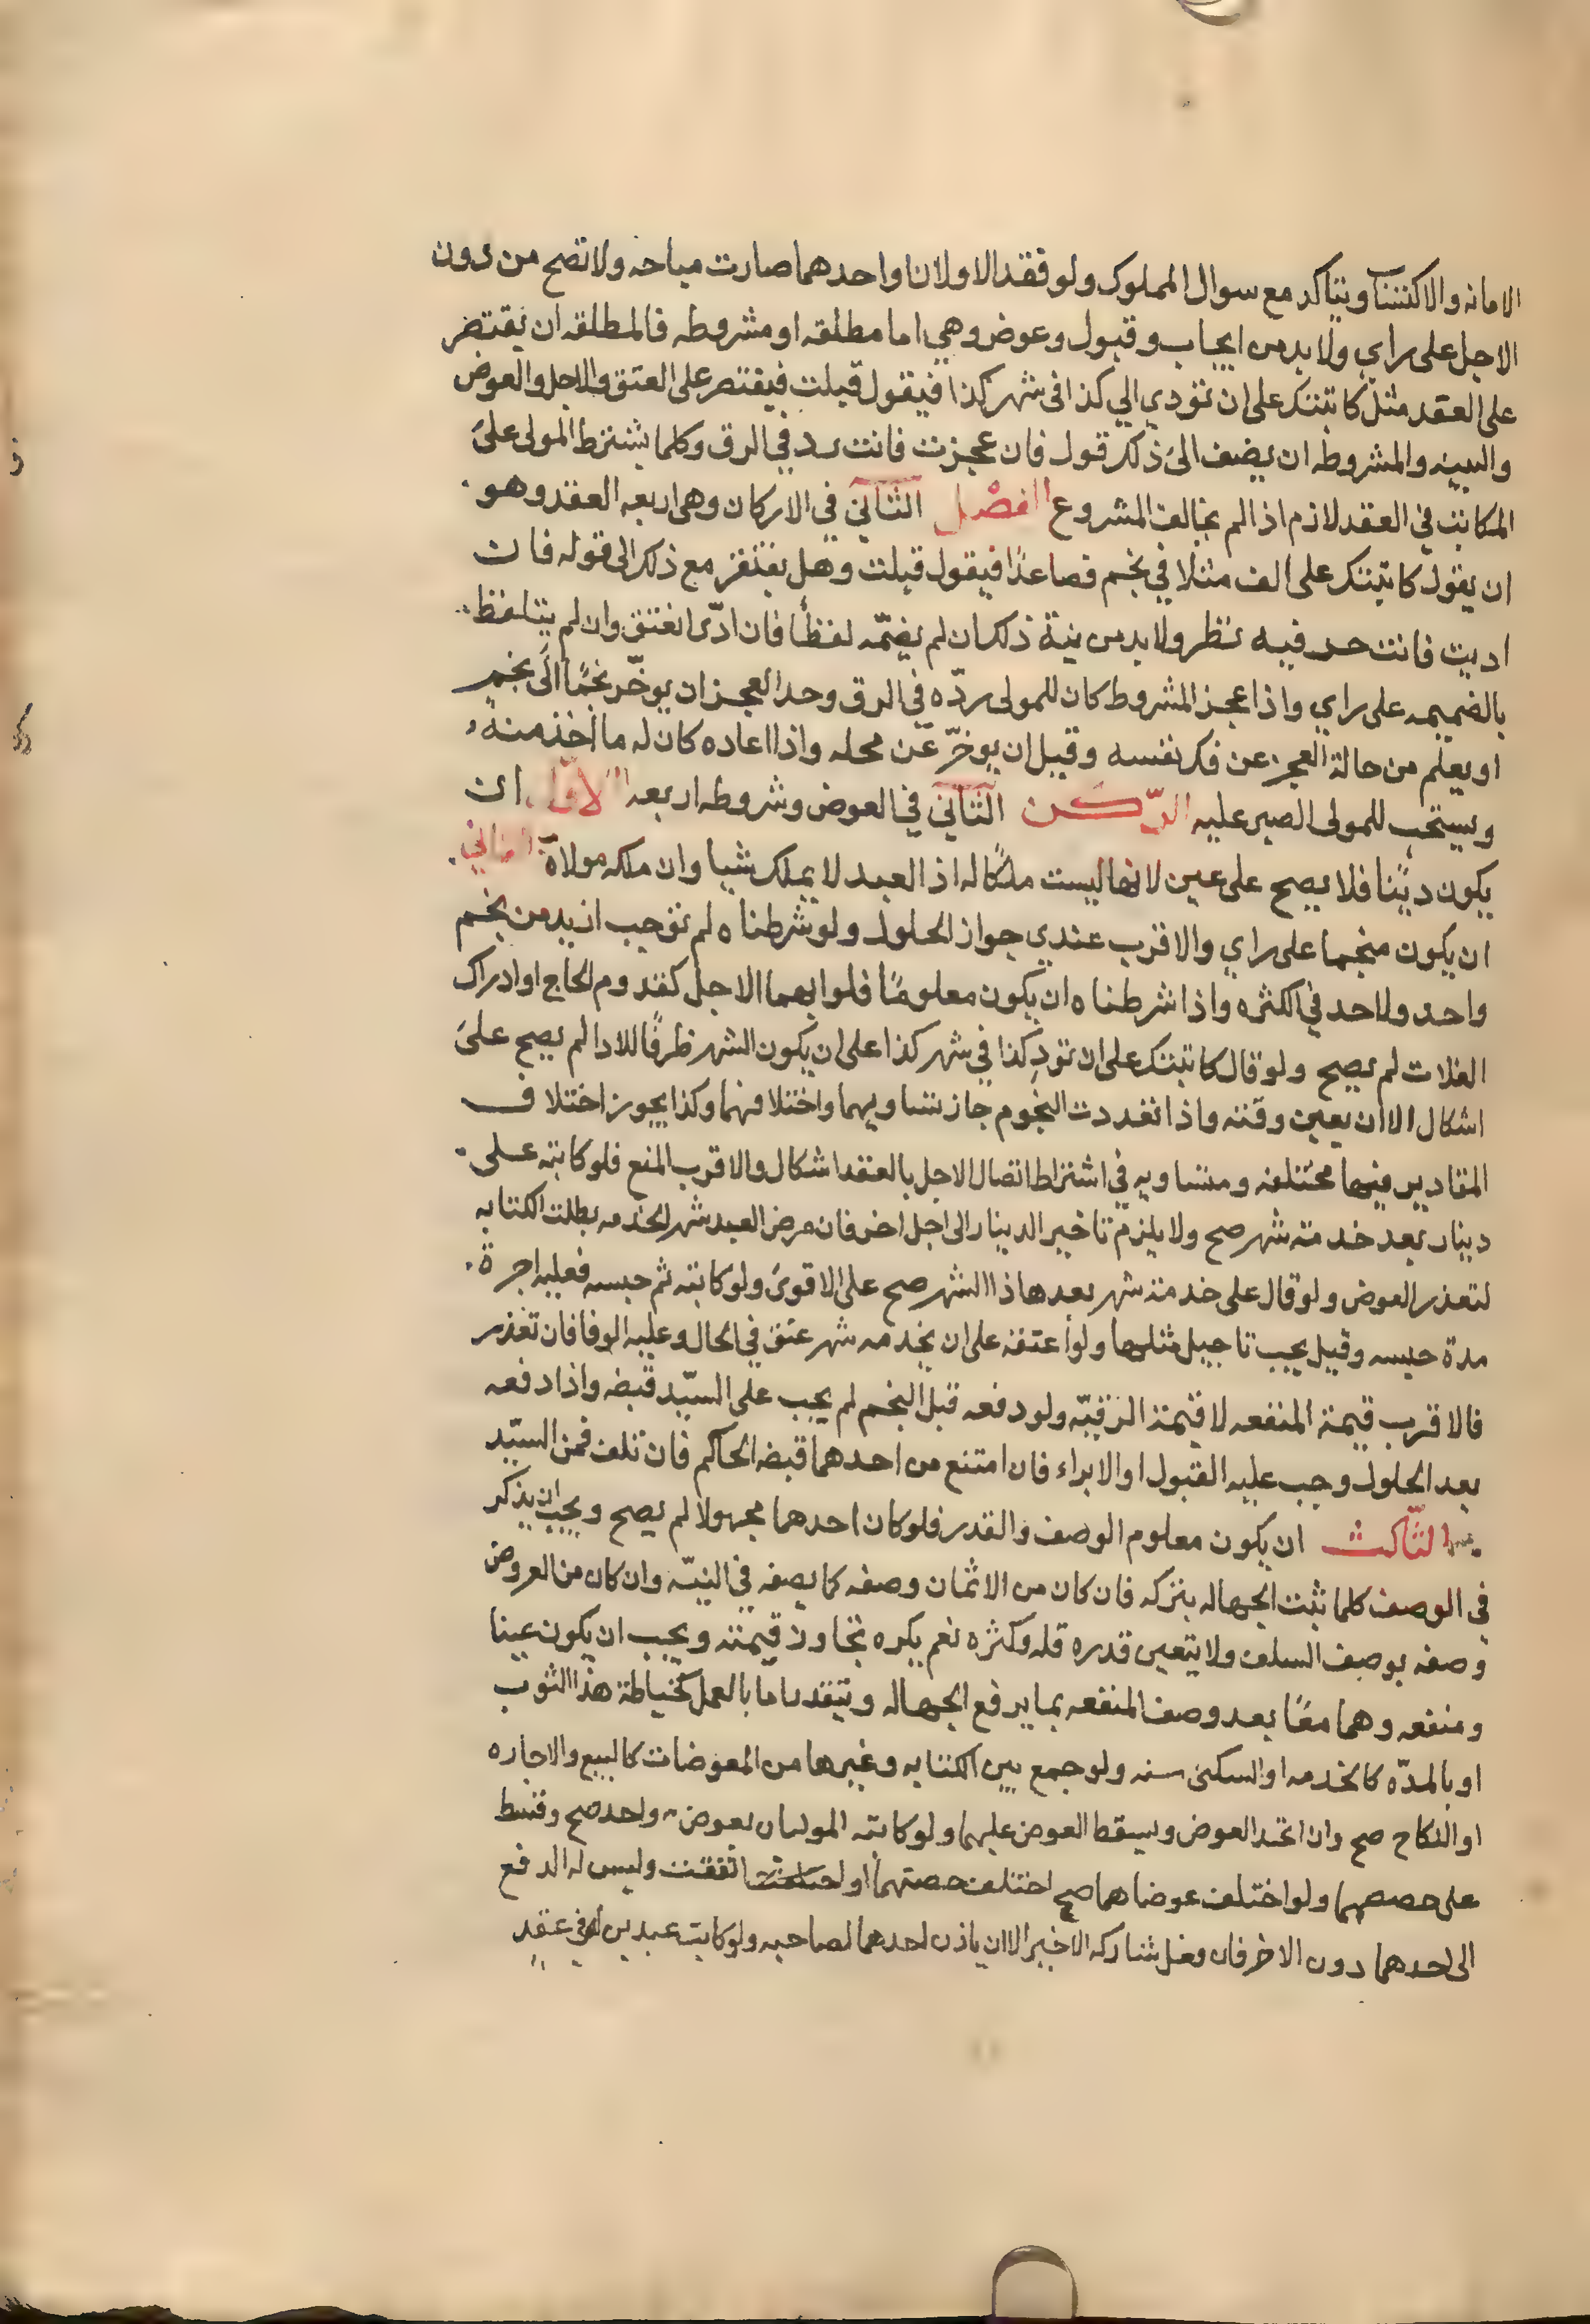 الامانه والاكتساب ويتاكد مع سوال المملوك ولو فقد الاولان او احدهما صارت مباحه ولا تصح من دون
الاجل على راي ولا بد من ايجاب وقبول وعوض وهي اما مطلقه او مشروطه فالمطلقه ان يقتصر
على العقد مثل كاتبتك على ان تؤدي الي كذا في شهر كذا فيقول قبلت فيقتصر على العتق والاجل والعوض
والنيه والمشروطه ان يضف الى ذلك قول فان عجزت فانت رد في الرق وكلما يشترط المولى على
المكاتب في العقد لازم اذا لم يخالف المشروع الفصل الثاني في الاركان وهي اربعه العقد وهو
ان يقول كاتبتك على الف مثلا في نجم فصاعدًا فيقول قبلت وهل يفتقر مع ذلك الى قوله فان
اديت فانت حر فيه نظر ولا بد من نية ذلك ان لم يضمّه لفظًا فان ادّى انعتق وان لم يتلفظ
بالضميمه على راي واذا عجز المشروط كان للمولى ردّه في الرق وحد العجز ان يوخّر نجمًا الى نجم
او يعلم من حالة العجز عن فك نفسه وقيل ان يوخرّ عن محله واذا اعاده كان له ما اخذ منه
ويستحب للمولى الصبر عليه الرّكن الثاني في العوض وشروطه اربعه الاوّل ان
يكون دينا فلا يصح على عين لانها ليست ملكًا له اذ العبد لا يملك شيا وان ملكه مولاه ب الثاني
ان يكون منجما على راي والاقرب عندي جواز الحلول ولو شرطناه لم نوجب ازيد من نجم
واحد ولا حد في الكثره واذا شرطناه ان يكون معلومًا فلو ابهما الاجل كقدوم الحاج او ادراك
الغلات لم يصح ولو قال كاتبتك على ان تودِ كذا في شهر كذا على ان يكون الشهر ظرفًا للادا لم يصح على
اشكال الا ان يعين وقته واذا تعددت النجوم جاز تساويهما واختلافهما وكذا يجوز اختلاف
المقادير فيها مختلفه ومتساويه في اشتراط اتصال الاجل بالعقد اشكال والاقرب المنع فلو كاتبه على
دينار بعد خدمته شهر صح ولا يلزم تاخير الدينار الى اجل اخر فان مرض العبد شهر الخدمه بطلت الكتابه
لتعذر العوض ولو قال على خدمته شهر بعد هاذا الشهر صح على الاقوى ولو كاتبه ثم حبسه فعليه اجرة
مدة حبسه وقيل يجب تاجيل مثلها ولو أعتقه على ان يخدمه شهر عتق في الحال وعليه الوفا فان تعذر
فالاقرب قيمة المنفعه لا قيمة الرقبّه ولو دفعه قبل النجم لم يجب على السيّد قبضه واذا دفعه
بعد الحلول وجب عليه القبول او الابراء فان امتنع من احدهما قبضه الحاكم فان تلف فمن السيّد
الثالث ان يكون معلوم الوصف والقدر فلو كان احدهما مجهولا لم يصح ويجب ان يذكر
في الوصف كلما تثبت الجهاله بتركه فان كان من الاثمان وصفه كما يصفه في النيّه وان كان من العروض
وصفه بوصف السلف ولا يتعين قدره قله وكثره نعم يكره تجاوز قيمته ويجب ان يكون عينا
ومنفعه وهما معًا بعد وصف المنفعه بما يرفع الجهاله ويتقدر اما بالعمل كخياطة هذا الثوب
او بالمدّه كالخدمه او السكنى سنه ولو جمع بين الكتابه وغيرها من المعوضات كالبيع والاجاره
او النكاح صح وان اتحد العوض ويسقط العوض عليهما ولو كاتبه الموليان بعوض واحد صح وقسط
على حصصهما ولو اختلف عوضاهما صح اختلف حصتهما او اتفقت وليس له الدفع
الى احدهما دون الاخر فان فعل شاركه الاخير الا ان ياذن احدهما لصاحبه ولو كاتب عبدين له في عقد